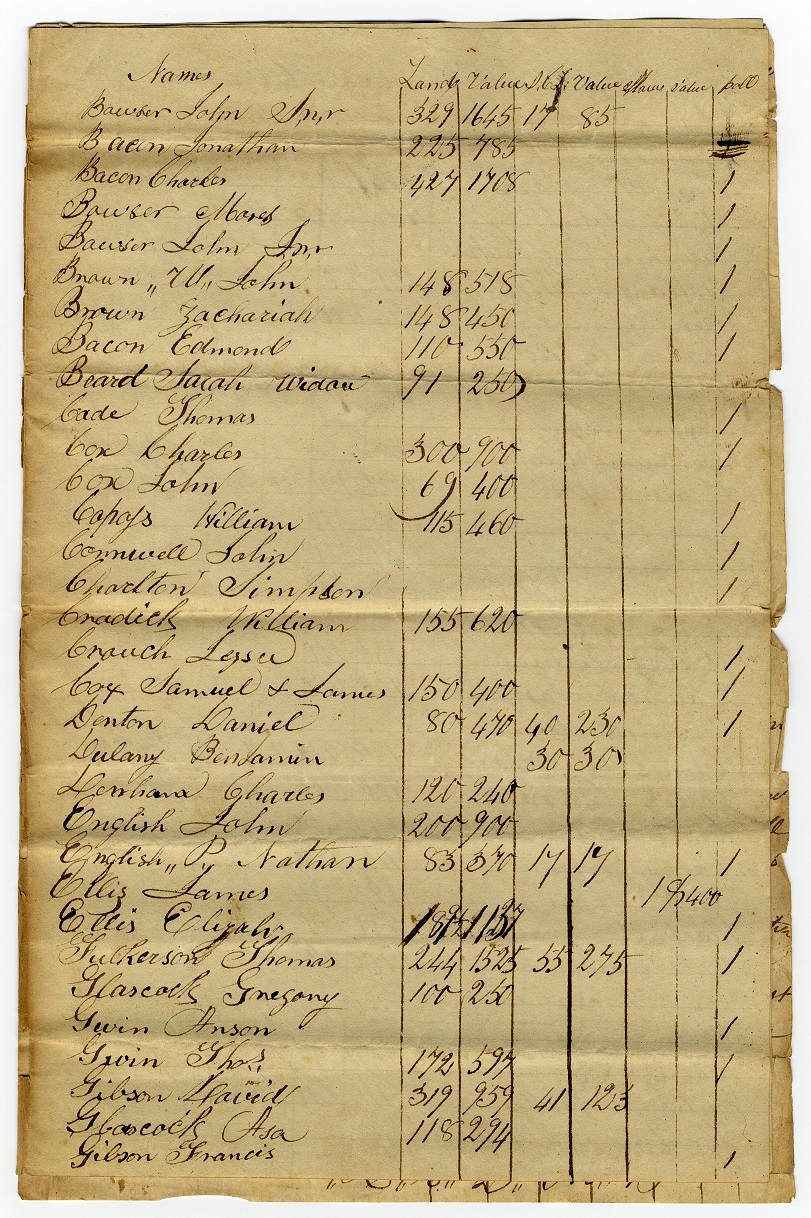 Names Land Value Value Slaves Value poll
Bowser John Snr 329 1645 17 85
Bacon Jonathan 225 785 1
Bacon Charles 427 1708 1
Bowser Moses 1
Bowser John Jnr 1
Brown „W„ John 148 518 1
Brown Zachariah 148 450 1
Bacon Edmond 110 550 1
Beard Sarah Widow 91 250
Cade Thomas 1
Cox Charles 300 900 1
Cox John 69 400
Copass William 115 460 1
Cornwell John 1
Charlton Simpson 1
Cradick William 155 620
Crouch Jesse 1
Cox Samuel & James 150 400 1
Denton Daniel 80 470 40 230 1
Dulany Benjamin 30 30
Charles 120 240
English John 200 900
English „P„ Nathan 83 370 17 17 1
Ellis James 1 $400
Ellis Elizah 1
Fulkerson Thomas 244 1525 55 275 1
Glascock Gregory 100 250
Gwin Anson 1
Gwin Thos 172 597 1
Gibson David 319 959 41 123
Glascock Asa 118 294
Gibson Francis 1